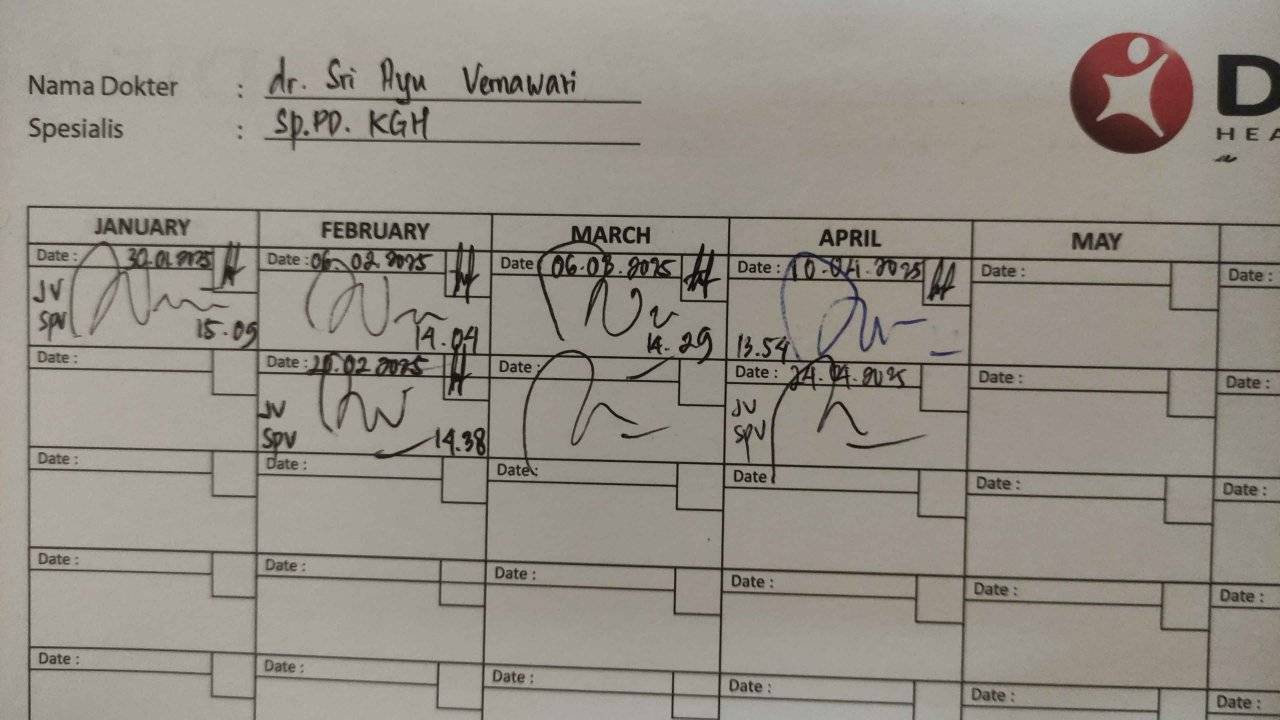 Nama Dokter : dr. Sri Ayu Vernawati
Spesialis : Sp.PD. KGH
D
HEA
JANUARY FEBRUARY MARCH APRIL MAY
Date : 30.01.2025 Date : 06.02.2025 Date 06.03.2025 Date : 10.04.2025 Date : Date :
JV
SPV
15.09 14.04 14.29 13.54
Date : Date : 20.02.2025 Date : Date : 24.04.2025 Date : Date :
JV JV
SPV 14.38 SPV
Date : Date : Date : Date Date : Date :
Date : Date : Date : Date : Date : Date :
Date : Date : Date : Date : Date : Date :